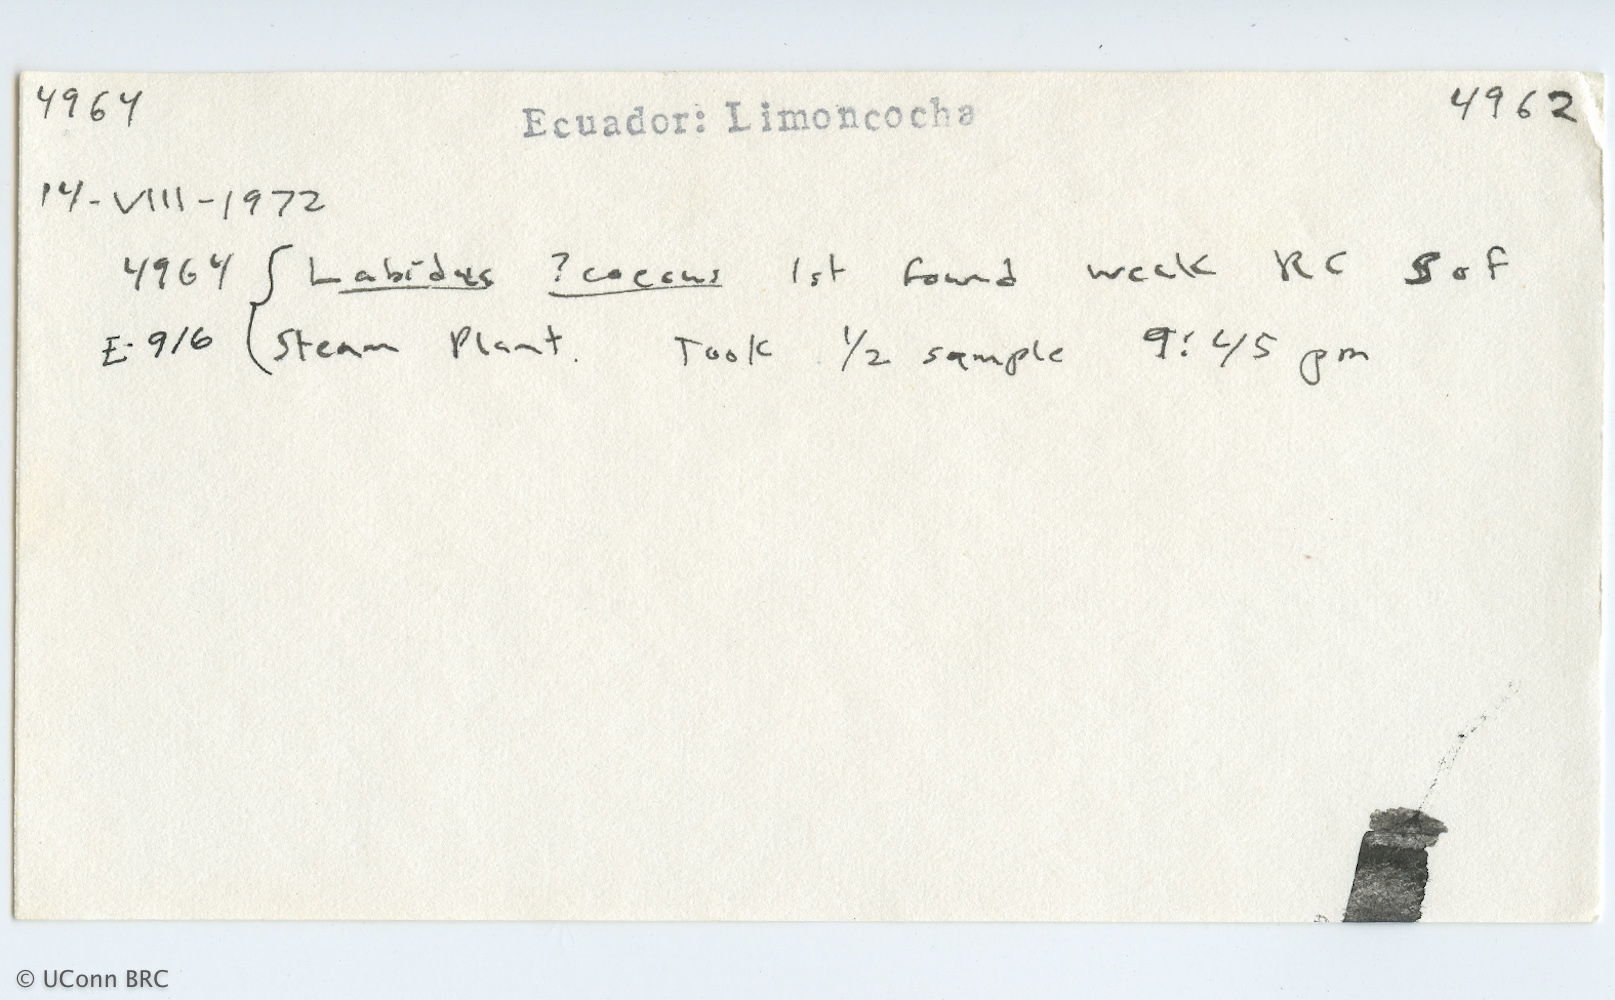 4964 Ecuador: Limoncocha 4962
14-VIII-1972
4964 { Labidus ?coecus 1st found week RC S of
E-916 Steam Plant. Took 1/2 sample 9:45 pm
© UConn BRC